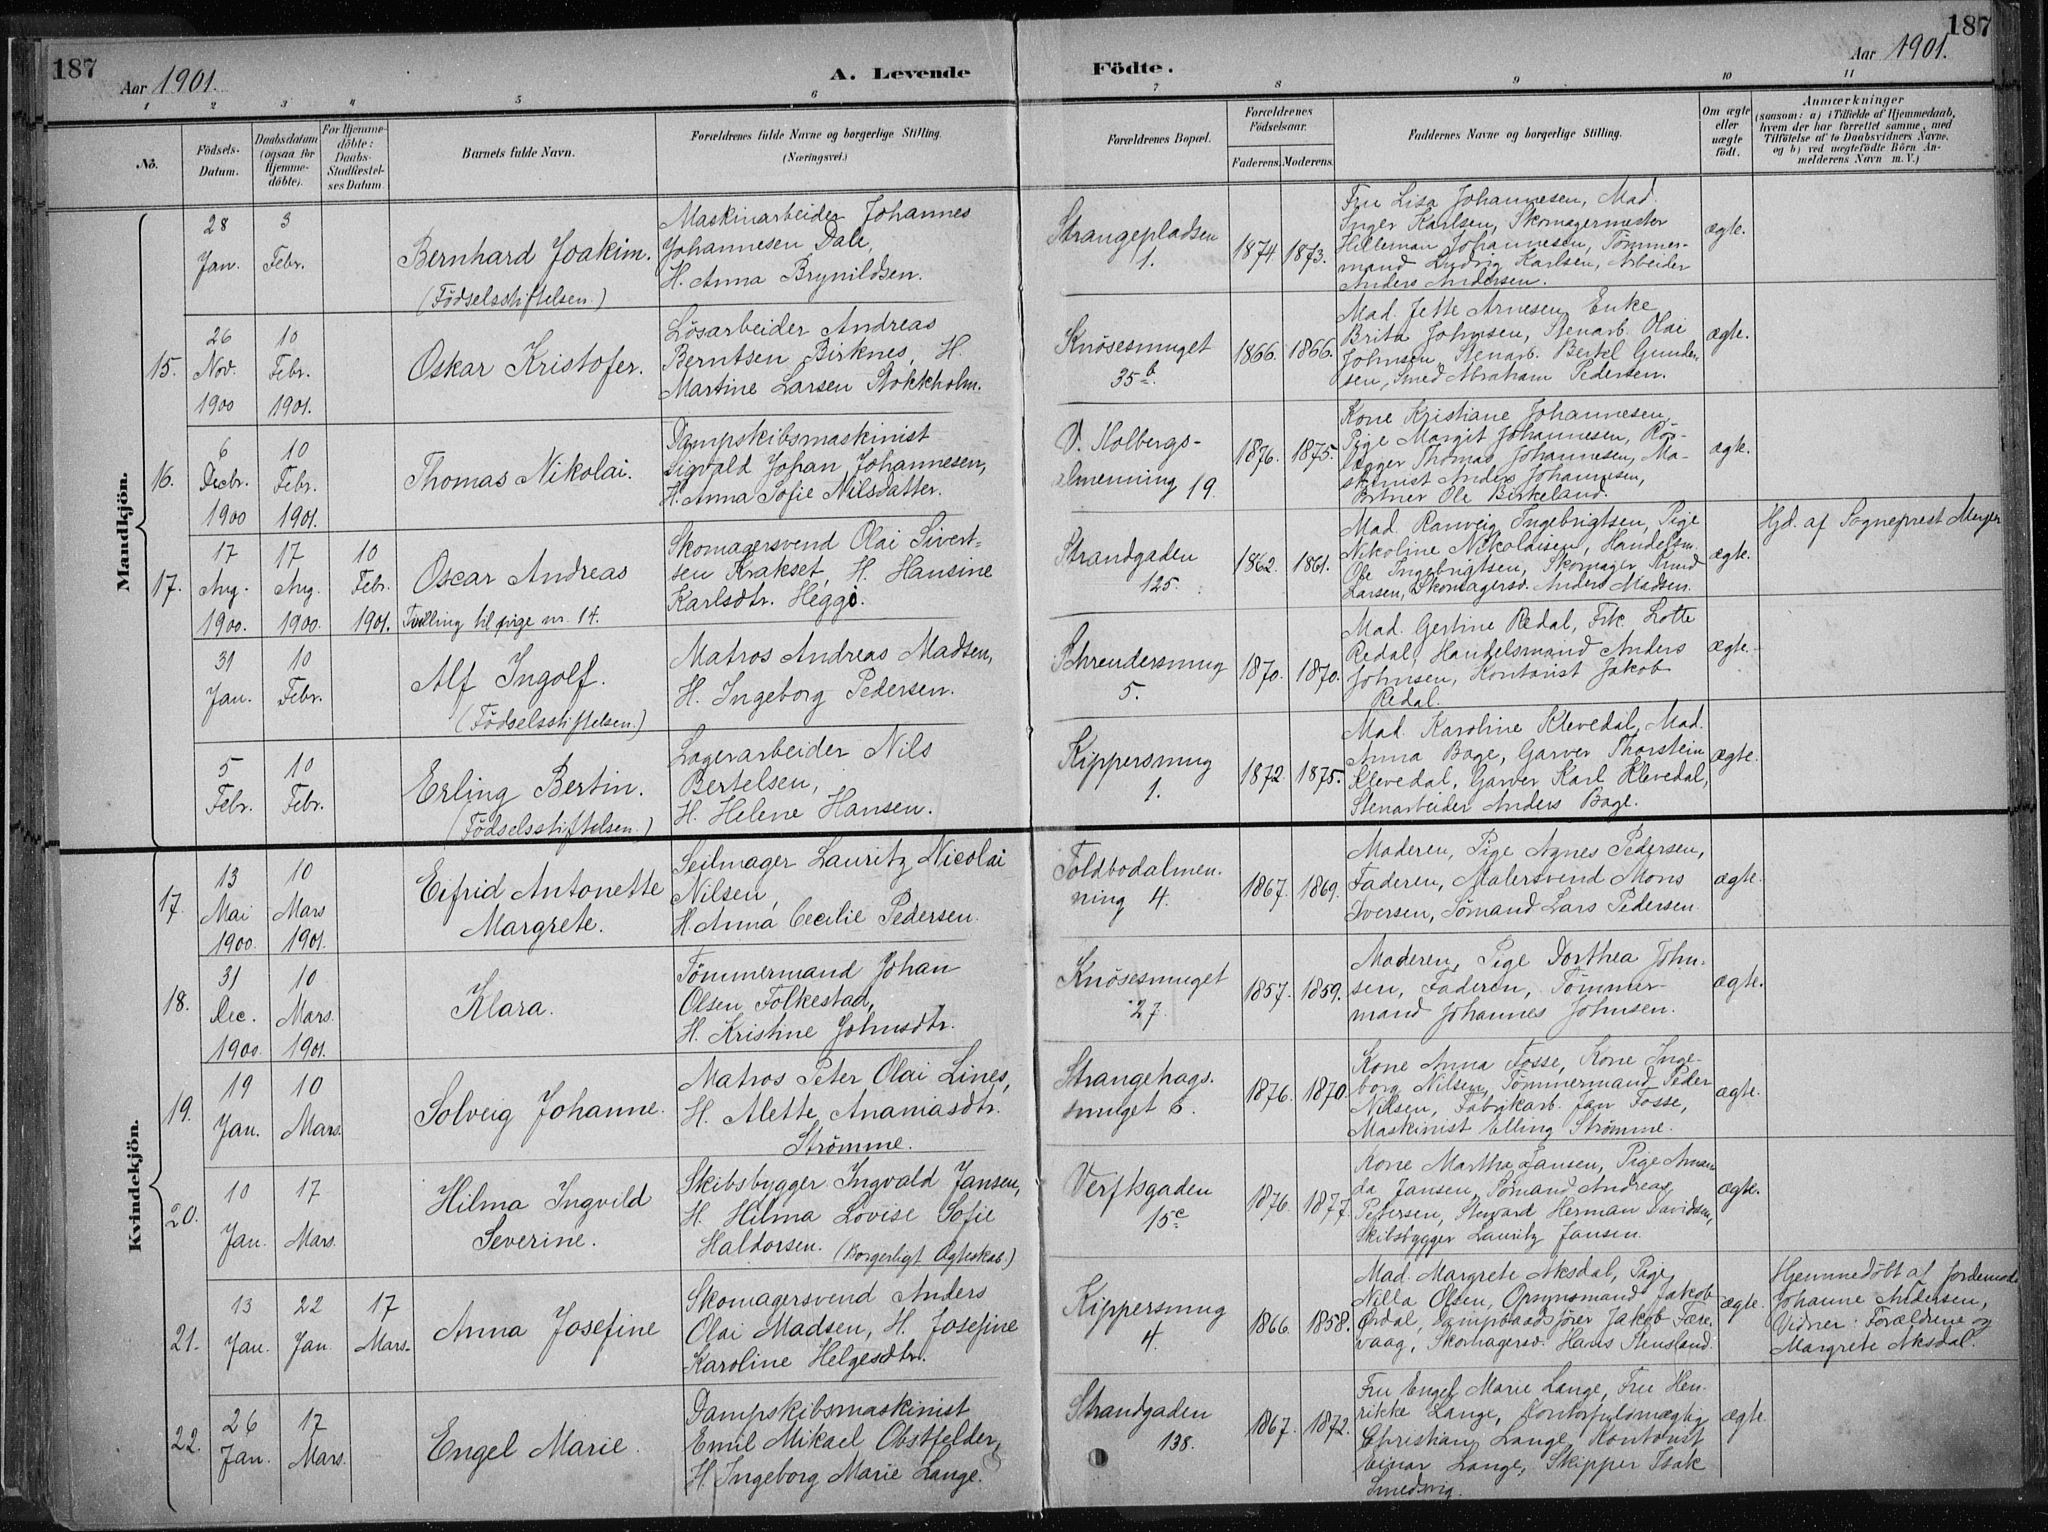 187
Aar 1901.
A. Levende
Födte.
Aar 1901.
187
1 2 3 4 5 6 7 8 9 10 11
No.
Födsels-
Datum.
Daabsdatum
(ogsaa for
Hjemme-
döbte).
For Hjemme-
döbte:
Daabs-
Stadfæstel-
ses Datum.
Barnets fulde Navn.
Forældrenes fulde Navne og borgerlige Stilling.
(Næringsvei.)
Forældrenes Bopæl.
Forældrenes
Födselsaar.
Faderens. Moderens.
Faddernes Navne og borgerlige Stilling.
Om ægte
eller
uægte
födt.
Anmærkninger
(saasom: a) i Tilfælde af Hjemmedaab,
hvem der har forrettet samme, med
Tilföielse af to Daabsvidners Navne,
og b) ved uægtefödte Börn An-
melderens Navn m. V.)
Mandkjön.
28
Jan.
3
Febr.
Bernhard Joakim.
(Födselsstiftelsen.)
Maskinarbeider Johannes
Johannesen Dale,
H. Anna Brynildsen.
Strangepladsen
1.
1874. 1873.
Fru Lisa Johannesen, Mad.
Inger Karlsen, Skomagermester
Hilleman Johannesen, Tömmer-
mand Ludvig Karlsen, Arbeider
Anders Andersen.
ægte.
15.
26
Nov.
1900
10
Febr.
1901.
Oskar Kristofer.
Lösarbeider Andreas
Berntsen Birknes, H.
Martine Larsen Stokkholm.
Knösesmuget
35 b.
1866. 1866.
Mad. Jette Arnesen, Enke
Brita Johnsen, Stenarb. Olai
Johnsen, Stenarb. Bertel Gunder-
sen, Smed Abraham Pedersen.
ægte.
16.
6
Decbr.
1900
10
Febr.
1901.
Thomas Nikolai.
Dampskibsmaskinist
Sigvald Johan Johannesen,
H. Anna Sofie Nilsdatter.
V. Holbergs-
almenning 19.
1876. 1875.
Kone Kristiane Johannesen,
Pige Margit Johannesen, Rör-
lægger Thomas Johannesen, Ma-
skinist Anders Johannesen,
Ole Birkeland.
ægte.
17.
17
Aug.
1900.
17
Aug.
1900.
10
Febr.
1901.
Oscar Andreas
Tvilling til pige nr. 14.
Skomagersvend Olai Sivert-
sen Krakset, H. Hansine
Karlsdtr. Heggö.
Strandgaden
125.
1862. 1861.
Mad. Ranveig Ingebrigtsen, Pige
Nikoline Nikolaisen, Handelsm.
Ole Ingebrigtsen, Skomager Knud
Larsen, Skomagersv. Anders Madsen.
ægte.
Hjd. af Sogneprest Meyer
31
Jan.
10
Febr.
Alf Ingolf.
(Födselsstiftelsen.)
Matros Andreas Madsen,
H. Ingeborg Pedersen.
Schreudersmug
5.
1870. 1870.
Mad. Gertine Redal, Frk. Lotte
Redal, Handelsmand Anders
Johnsen, Kontorist Jakob
Redal.
ægte.
5
Febr.
10
Febr.
Erling Bertin.
(Födselsstiftelsen.)
Lagerarbeider Nils
Bertelsen,
H. Helene Hansen.
Kippersmug
1.
1872 1875.
Mad. Karoline Klevedal, Mad.
Anna Bage, Garver Thorstein
Klevedal, Garver Karl Klevedal,
Stenarbeider Anders Bage.
ægte.
Kvindekjön.
17.
13
Mai
1900.
10
Mars
1901.
Eifrid Antonette
Margrete.
Seilmager Lauritz Nicolai
Nilsen,
H. Anna Cecilie Pedersen.
Toldbodalmen-
ning 4.
1867. 1869.
Moderen, Pige Agnes Pedersen,
Faderen, Malersvend Mons
Iversen, Sömand Lars Pedersen.
ægte.
18.
31
Dec.
1900
10
Mars.
1901.
Klara.
Tömmermand Johan
Olsen Folkestad,
H. Kristine Johnsdtr.
Knösesmuget
27.
1857. 1859.
Moderen, Pige Dorthea John-
sen, Faderen, Tömmer-
mand Johannes Johnsen.
ægte.
19.
19
Jan.
10
Mars.
Solveig Johanne.
Matros Peter Olai Lines,
H. Alette Ananiasdtr.
Strømme.
Strangehags-
smuget 6.
1876. 1870.
Kone Anna Fosse, Kone Inge-
borg Nilsen, Tömmermand Peder
Nilsen, Fabrikarb. Jan Fosse,
Maskinist Elling Strømme.
ægte.
20.
10
Jan.
17
Mars.
Hilma Ingvild
Severine.
Skibsbygger Ingvald Jansen,
H. Hilma Lovise Sofie
Haldorsen. (Borgerligt Ægteskab.)
Verftsgaden
15 c
1876. 1877.
Kone Martha Jansen, Pige Aman-
da Jansen, Sömand Andreas
Petersen, Steward Herman Davidsen,
Skibsbygger Lauritz Jansen.
ægte.
21.
13
Jan.
22
Jan.
17
Mars.
Anna Josefine
Skomagersvend Anders
Olai Madsen, H. Josefine
Karoline Helgesdtr.
Kippersmug
4.
1866. 1858.
Mad. Margrete Aksdal, Pige
Nilla Olsen, Opsynsmand Jakob
Ørdal, Dampbaadsfører Jakob Fære-
vaag, Skomagersv. Hans Stensland.
ægte.
Hjemmedöbt af Jordemoder
Johanne Andersen,
Vidner: Forældrene og
Margrete Aksdal.
22.
26
Jan.
17
Mars.
Engel Marie.
Dampskibsmaskinist
Emil Mikael Obstfelder,
H. Ingeborg Marie Lange.
Strandgaden
138.
1867. 1872.
Fru Engel Marie Lange, Fru Hen-
rikke Lange, Kontorfuldmægtig
Christian Lange, Kontorist
Einar Lange, Skipper Isak
Smedsvig.
ægte.